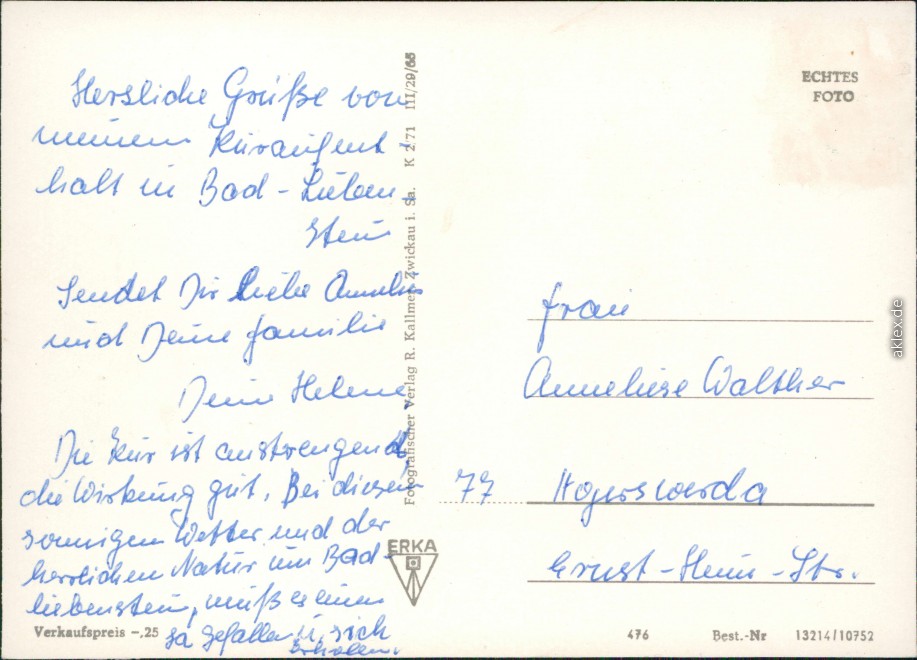 Herzliche Grüße von
meinem Kuraufent-
halt in Bad-Lieben
stein
Sendet Dir liebe Annelies
und Deine Familie
Deine Helene,
Die Kur ist anstrengend,
die Wirkung gut. Bei diesem
sonnigen Wetter und der
herrlichen Natur um Bad-
liebenstein, muß es einen
ja gefallen u. sich
erholen.
Verkaufspreis -,25
Fotografischer Verlag R. Kallmer, Zwickau i. Sa. K 2/71 III/29/68
ERKA
ECHTES
FOTO
Frau
Anneliese Walther
77 Hoyerswerda
Ernst-Heim-Str.
476 Best.-Nr 13214/10752
aklex.de